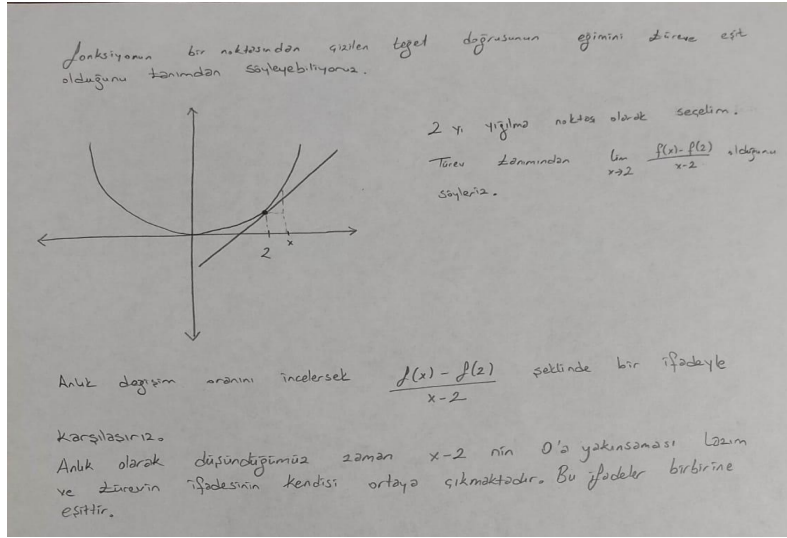 fonksiyonun bir noktasından çizilen teğet doğrusunun eğimini türeve eşit
olduğunu tanımdan söyleyebiliyoruz.
2 yi yığılma noktası olarak seçelim.
Türev tanımından lim x→2 f(x)-f(2) / x-2 olduğunu
söyleriz.
2 x
Anlık değişim oranını incelersek f(x) - f(2) / x-2 şeklinde bir ifadeyle
karşılaşırız.
Anlık olarak düşündüğümüz zaman x-2 nin 0'a yakınsaması lazım
ve türevin ifadesinin kendisi ortaya çıkmaktadır. Bu ifadeler birbirine
eşittir.